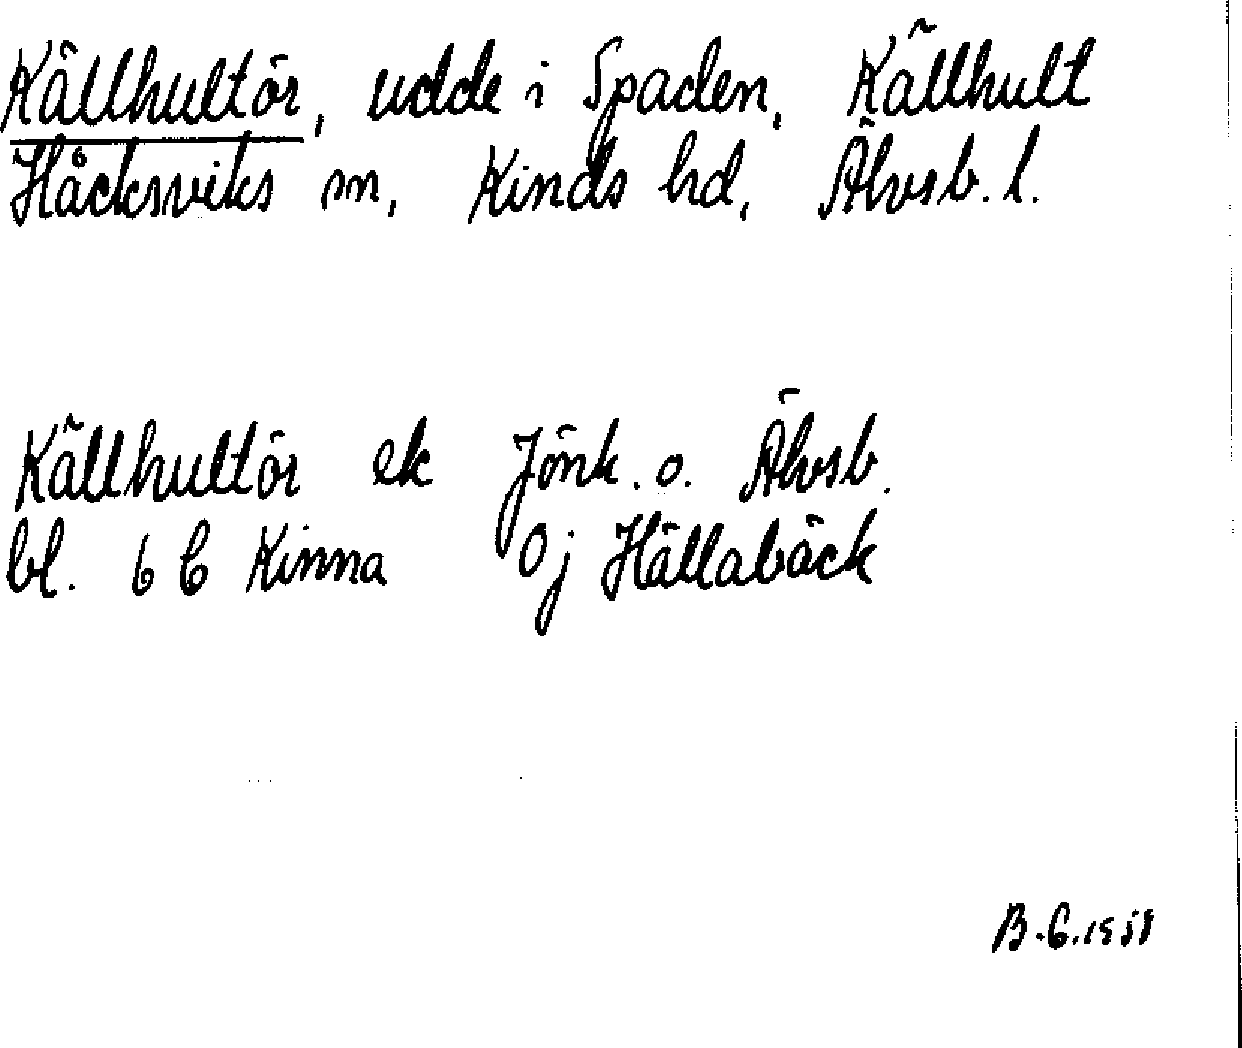 Källhultör, udde i Spaden, Källhult
Håcksviks sn, Kinds hd, Älvsb. l.
Källhultör ek Jönk. o. Älvsb.
bl. 6 C Kinna 0j Hällabäck
B.G. 1958